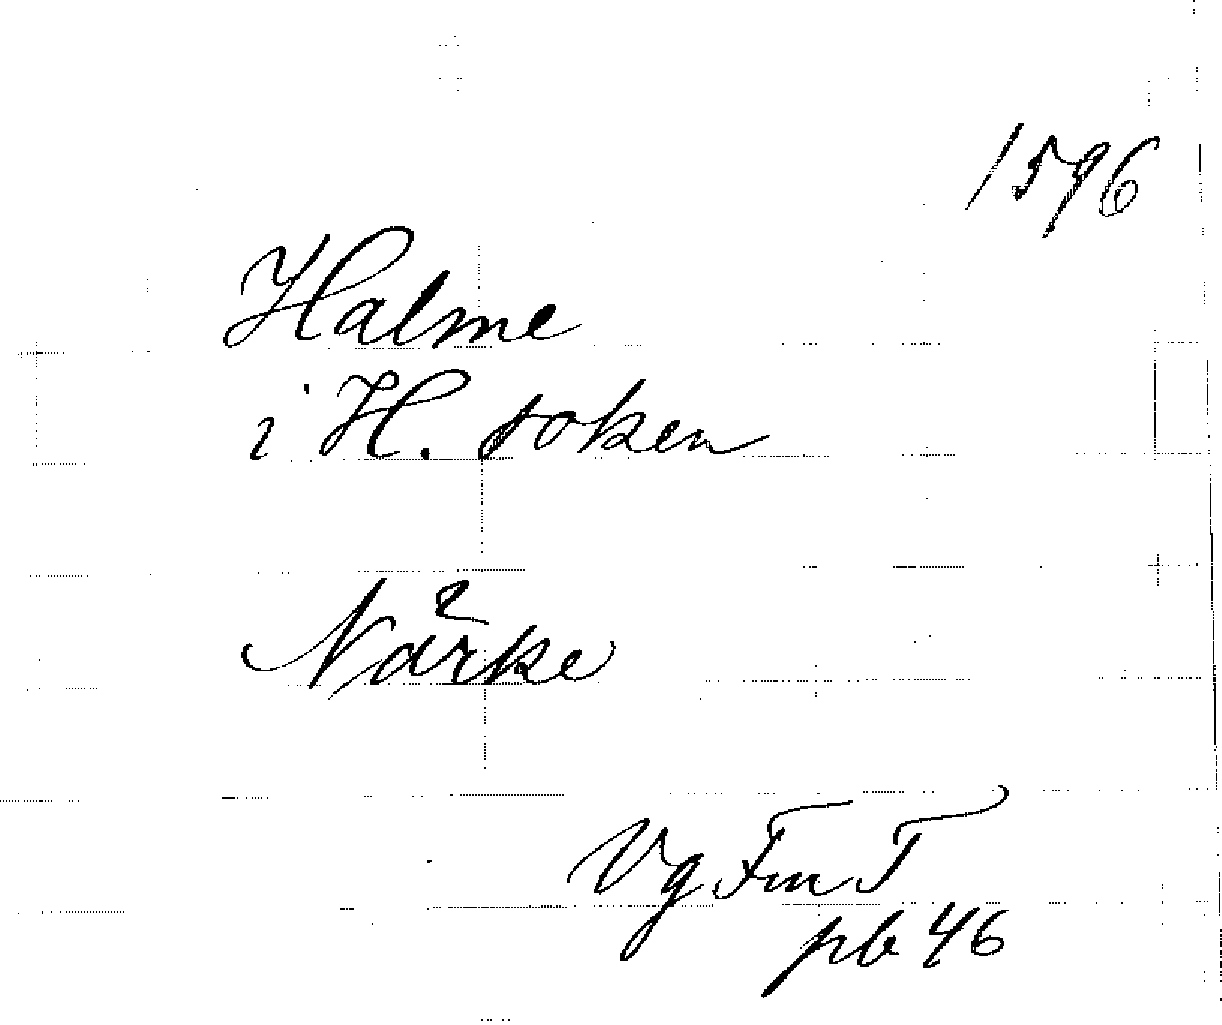 1596
Halme
i H. soken
Närke
Vg Fm T
pb 46